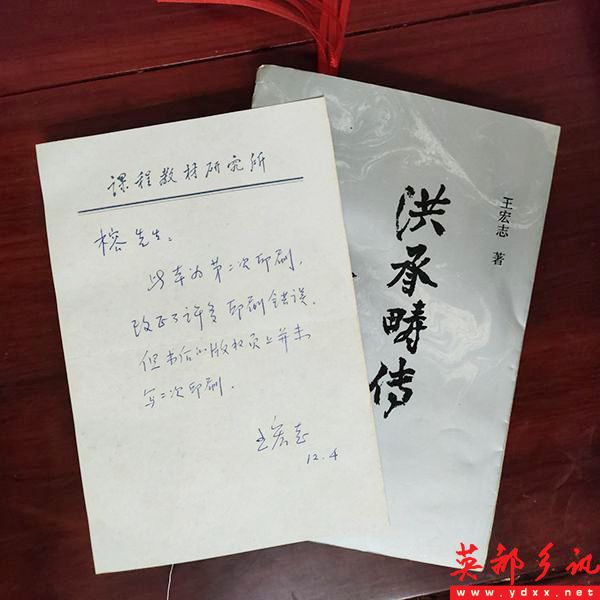 课程教材研究所
榕先生：
此本为第二次印刷，
改正了许多印刷错误。
但书后的版权页上并未
写二次印刷。
王宏志
12.4
王宏志 著
洪承畴传
英都乡讯
www.ydxx.net